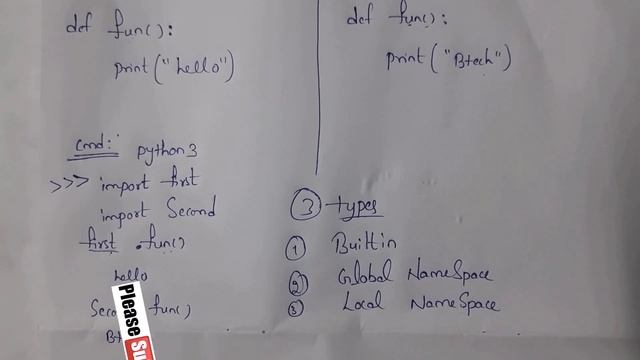 def fun():
print("hello")
def fun():
print("Btech")
cmd:
python3
>>> import first
import Second
first .fun()
hello
fun()
3 types
1 Builtin
2 Global NameSpace
3 Local NameSpace
Please